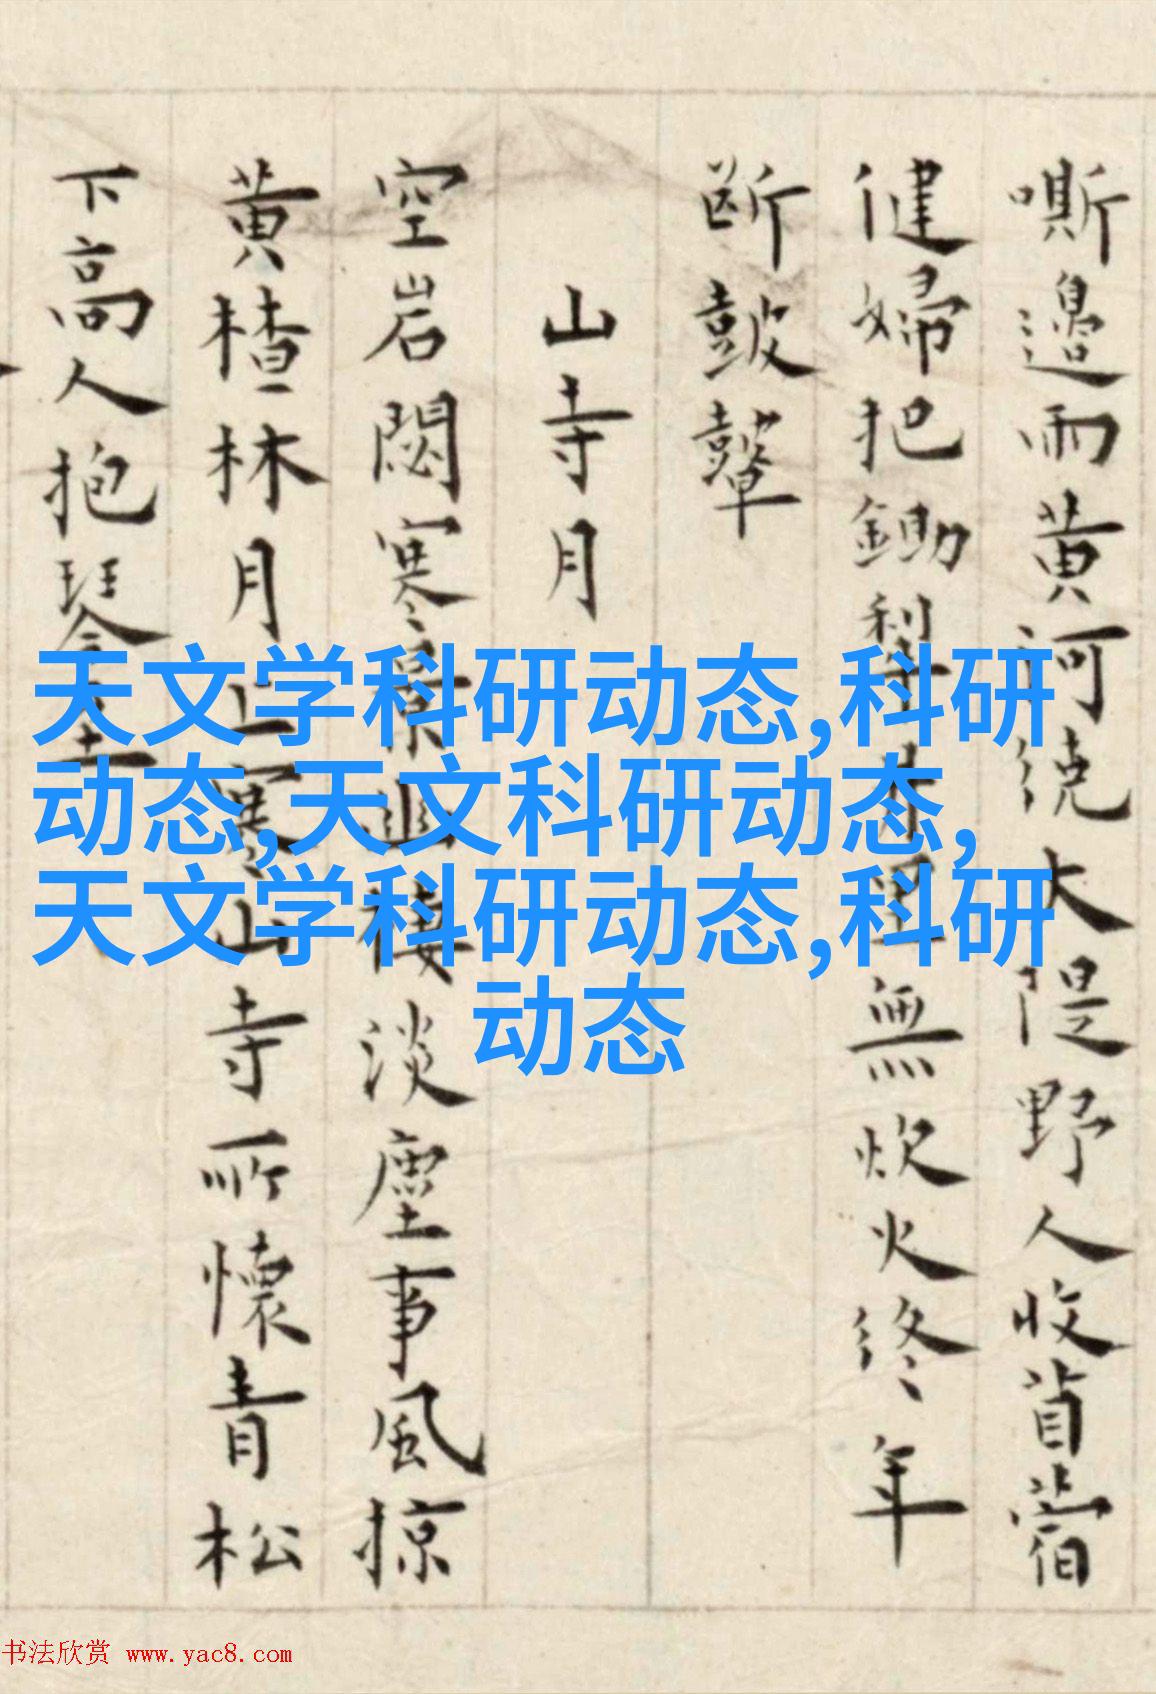 嘶邉雨黄河繞大隄野人收苜蓿
健婦把鋤犁井里無炊火終年
斷鼓鼙
山寺月
空岩閟寒景幽棲淡塵事風掠
黄楂林月上寒山寺所懷青松
下高人抱琴至
天文学科研动态,科研
动态,天文科研动态,
天文学科研动态,科研
动态
书法欣赏 www.yac8.com